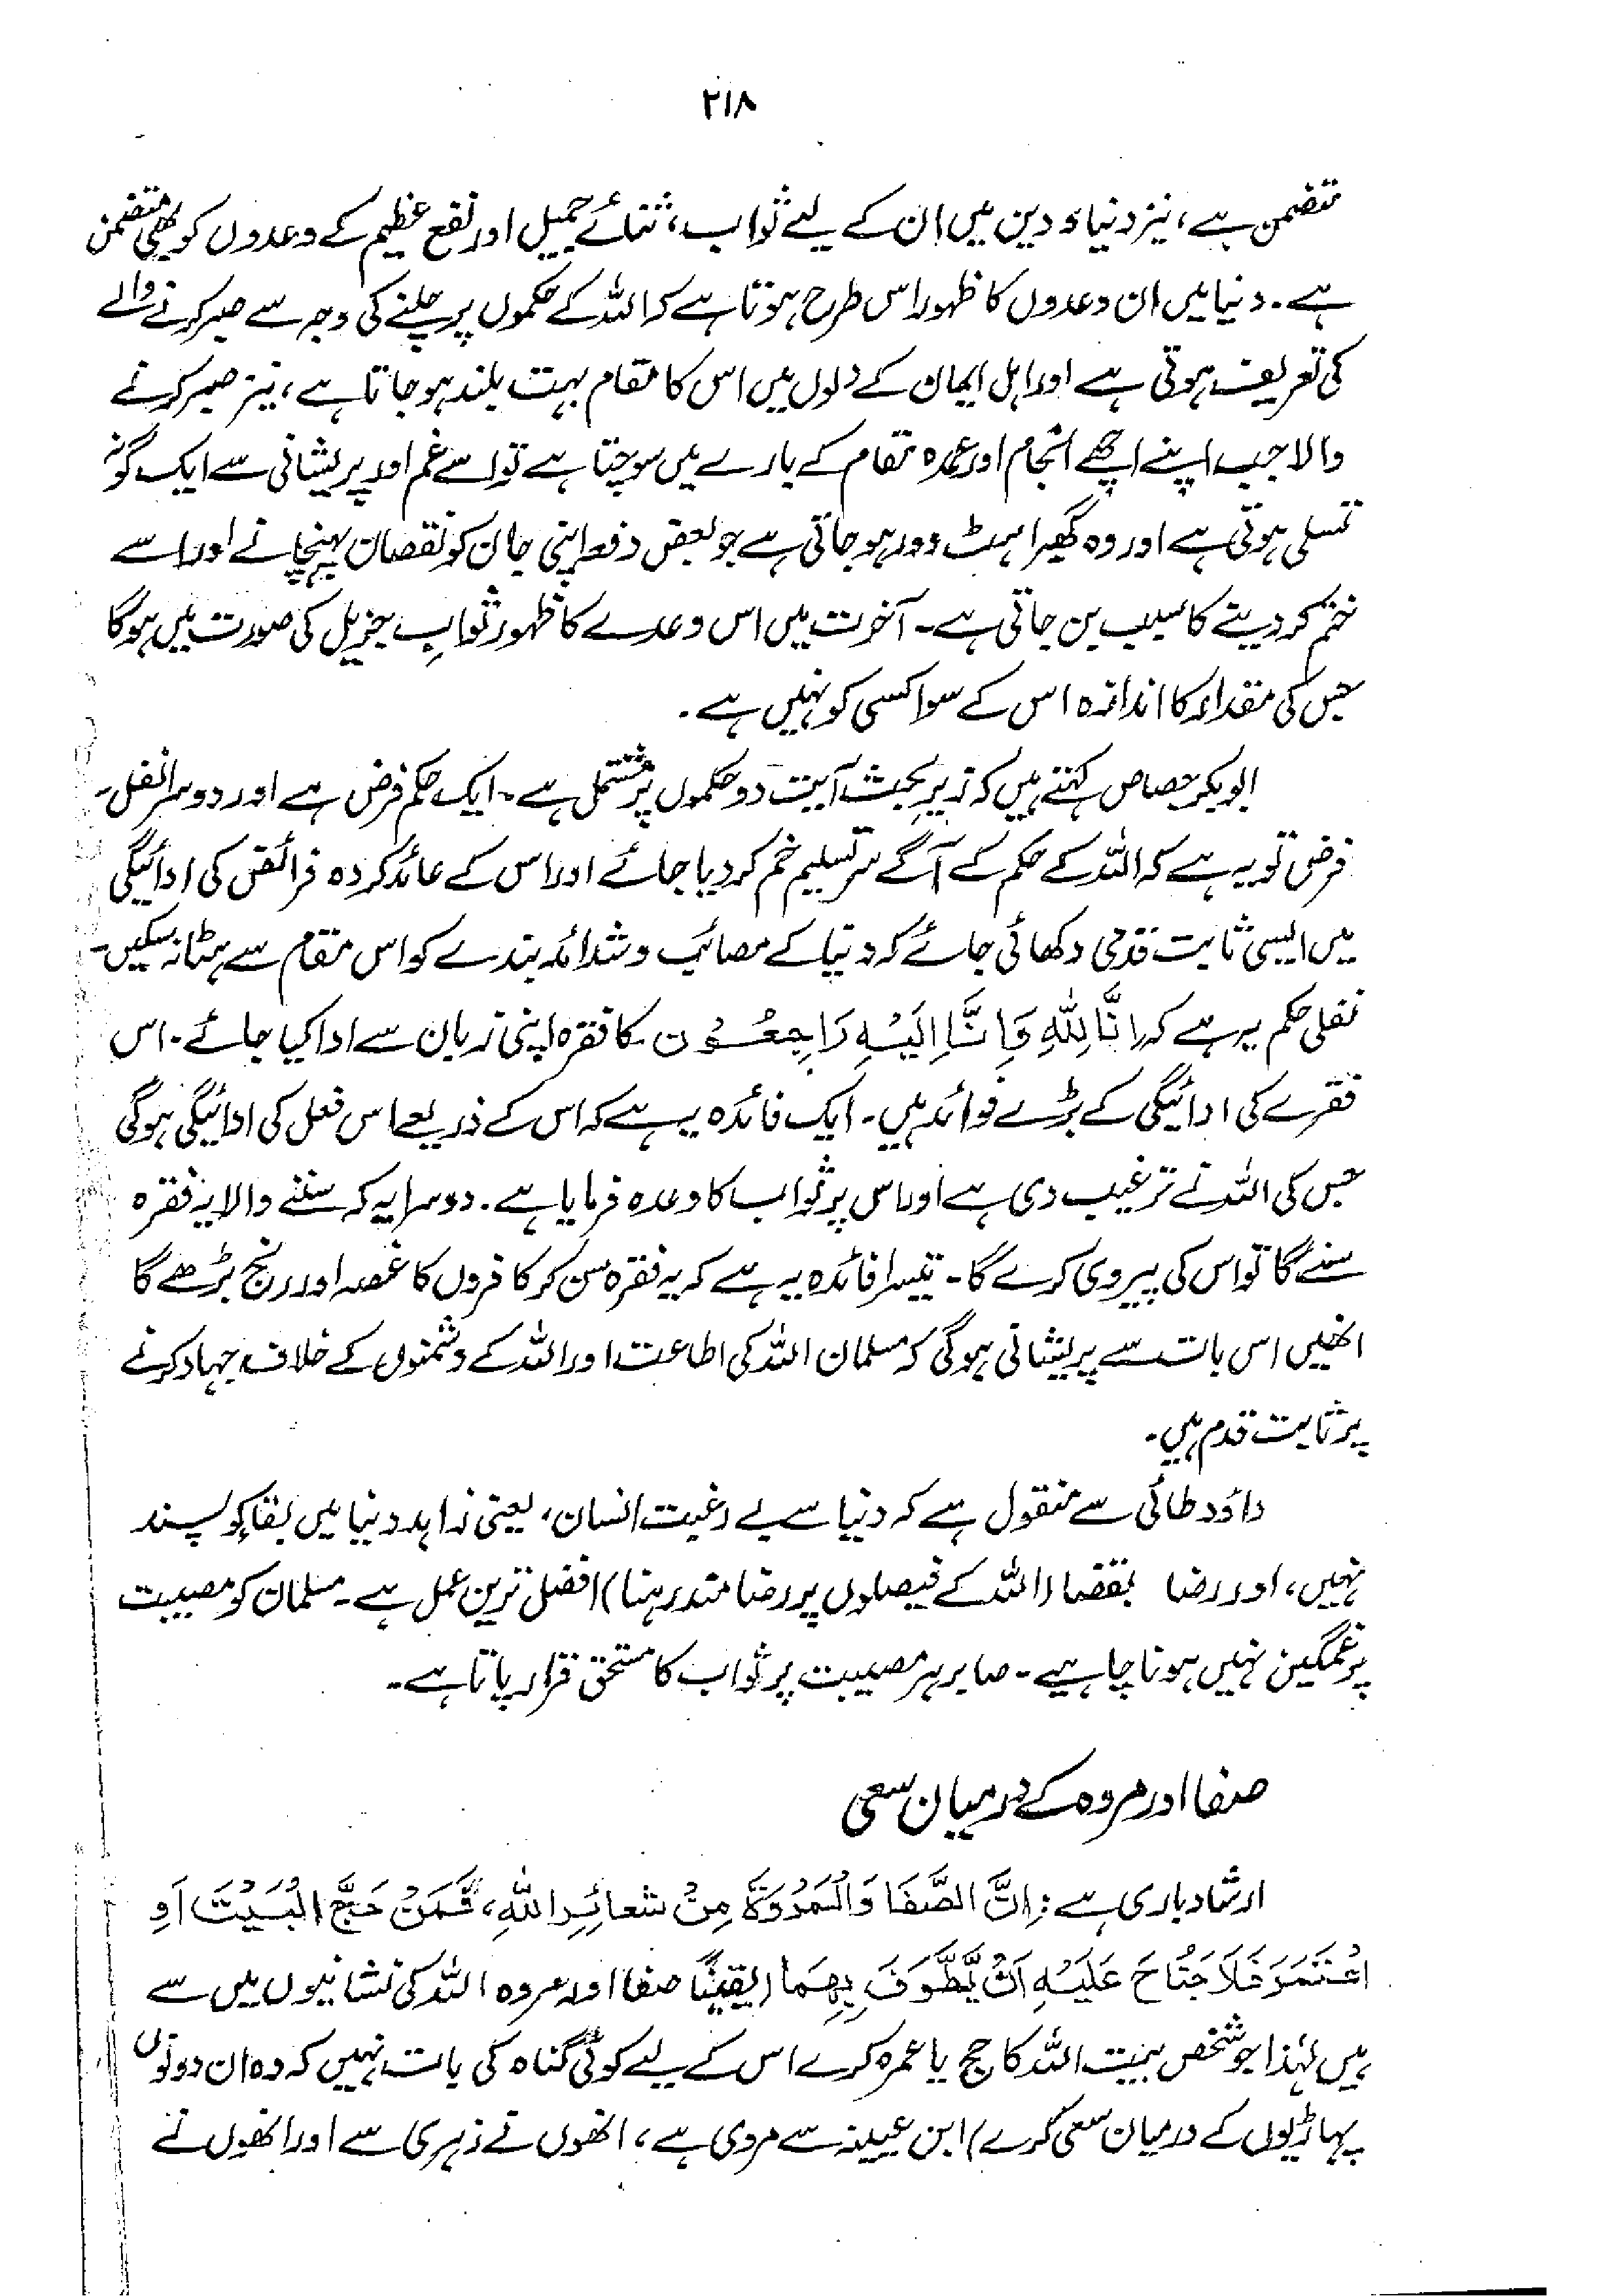 ۲۱۸
متضمن ہے، نیز دنیا و دین میں ان کے لیے ثواب، ثنائے جمیل اور نفع عظیم کے وعدوں کو بھی متضمن
ہے۔ دنیا میں ان وعدوں کا ظہور اس طرح ہوتا ہے کہ اللہ کے حکموں پر چلنے کی وجہ سے صبر کرنے والے
کی تعریف ہوتی ہے اور اہل ایمان کے دلوں میں اس کا مقام بہت بلند ہو جاتا ہے، نیز صبر کرنے
والا جب اپنے اچھے انجام اور عمدہ مقام کے بارے میں سوچتا ہے تو اسے غم اور پریشانی سے ایک گونہ
تسلی ہوتی ہے اور وہ گھبراہٹ دور ہو جاتی ہے جو بعض دفعہ اپنی جان کو نقصان پہنچانے اور اسے
ختم کر دینے کا سبب بن جاتی ہے۔ آخرت میں اس وعدے کا ظہور ثوابِ جزیل کی صورت میں ہوگا
جس کی مقدار کا اندازہ اس کے سوا کسی کو نہیں ہے۔
ابوبکر جصاص کہتے ہیں کہ زیر بحث آیت دو حکموں پر مشتمل ہے۔ ایک حکم فرض ہے اور دوسرا نفل۔
فرض تو یہ ہے کہ اللہ کے حکم کے آگے سرتسلیم خم کر دیا جائے اور اس کے عائد کردہ فرائض کی ادائیگی
میں ایسی ثابت قدمی دکھائی جائے کہ دنیا کے مصائب و شدائد بندے کو اس مقام سے ہٹا نہ سکیں۔
نفلی حکم یہ ہے کہ اِنَّا لِلّٰہِ وَاِنَّا اِلَیْہِ رَاجِعُوْن کا فقرہ اپنی زبان سے ادا کیا جائے۔ اس
فقرے کی ادائیگی کے بڑے فوائد ہیں۔ ایک فائدہ یہ ہے کہ اس کے ذریعے اس فعل کی ادائیگی ہوگی
جس کی اللہ نے ترغیب دی ہے اور اس پر ثواب کا وعدہ فرمایا ہے۔ دوسرا یہ کہ سننے والا یہ فقرہ
سنے گا تو اس کی پیروی کرے گا۔ تیسرا فائدہ یہ ہے کہ یہ فقرہ سن کر کافروں کا غصہ اور رنج بڑھے گا
انھیں اس بات سے پریشانی ہوگی کہ مسلمان اللہ کی اطاعت اور اللہ کے دشمنوں کے خلاف جہاد کرنے
پر ثابت قدم ہیں۔
داؤد طائی سے منقول ہے کہ دنیا سے بے رغبت انسان، یعنی زاہد دنیا میں بقاء کو پسند
نہیں، اور رضا بقضا (اللہ کے فیصلوں پر رضامند رہنا) افضل ترین عمل ہے۔ مسلمان کو مصیبت
پر غمگین نہیں ہونا چاہیے۔ صابر ہر مصیبت پر ثواب کا مستحق قرار پاتا ہے۔
صفا اور مروہ کے درمیان سعی
ارشاد باری ہے: اِنَّ الصَّفَا وَالْمَرْوَةَ مِنْ شَعَائِرِ اللّٰہِ، فَمَنْ حَجَّ الْبَیْتَ اَوِ
اعْتَمَرَ فَلَا جُنَاحَ عَلَیْہِ اَنْ یَّطَّوَّفَ بِھِمَا (یقیناً صفا اور مروہ اللہ کی نشانیوں میں سے
ہیں لہٰذا جو شخص بیت اللہ کا حج یا عمرہ کرے اس کے لیے کوئی گناہ کی بات نہیں کہ وہ ان دونوں
پہاڑیوں کے درمیان سعی کرے) ابن عیینہ سے مروی ہے، انھوں نے زہری سے اور انھوں نے